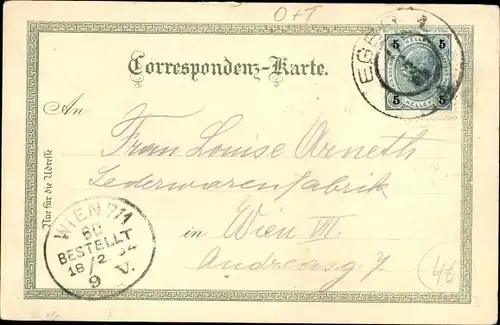 O+T
EGER 1
5 5
HELLER
5 5
Correspondenz-Karte.
An
Frau Louise Arneth
Lederwarenfabrik
in Wien VII.
Andreasg. 7
Nur für die Adresse
WIEN 7/1
BESTELLT
18/2
9 V.